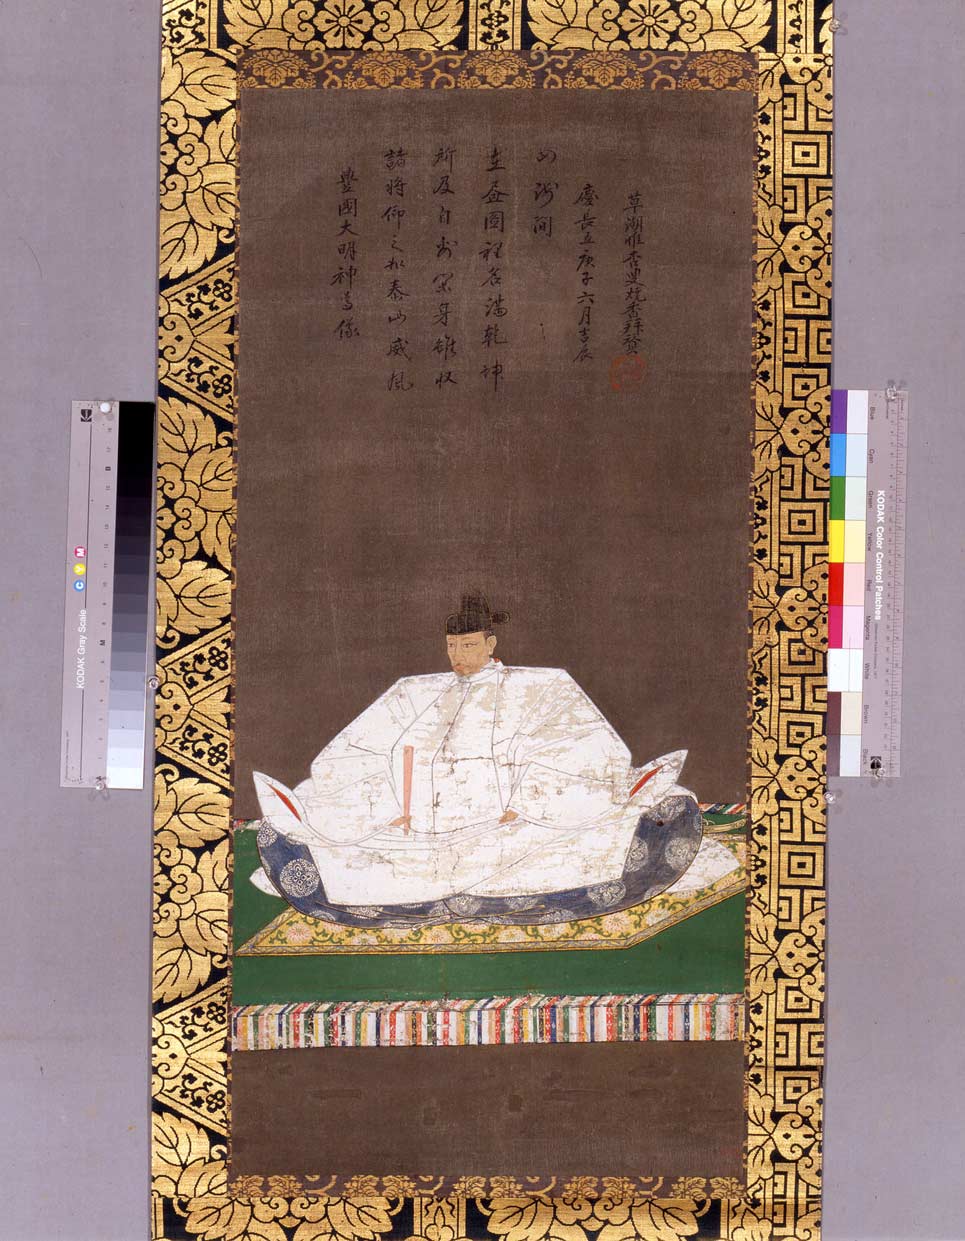 豐國大明神尊像
諸将仰之如泰山威風
所及自為関身雖収
在畫圖裡名滿乾坤
四海間
慶長五庚子六月吉辰
草湖惟杏叟焼香拝賛
KODAK Gray Scale
C Y M
B
M
KODAK Color Control Patches
Blue
Cyan
Green
Yellow
Red
Magenta
White
Brown
Black